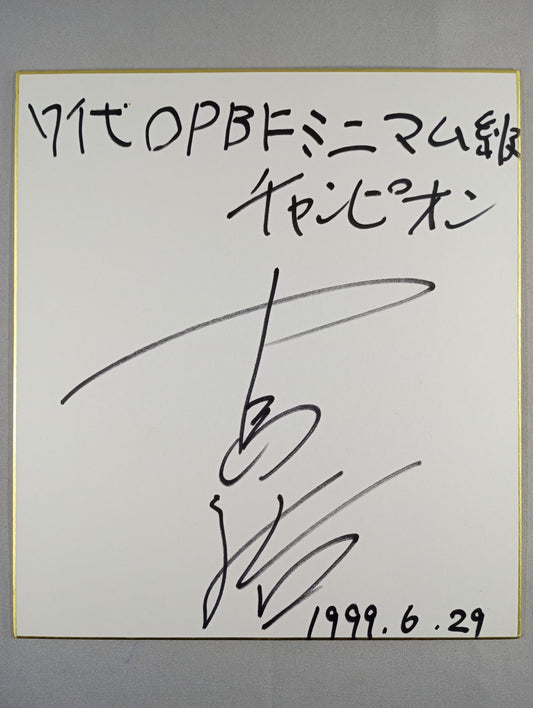 7代OPBFミニマム級
チャンピオン
1999.6.29